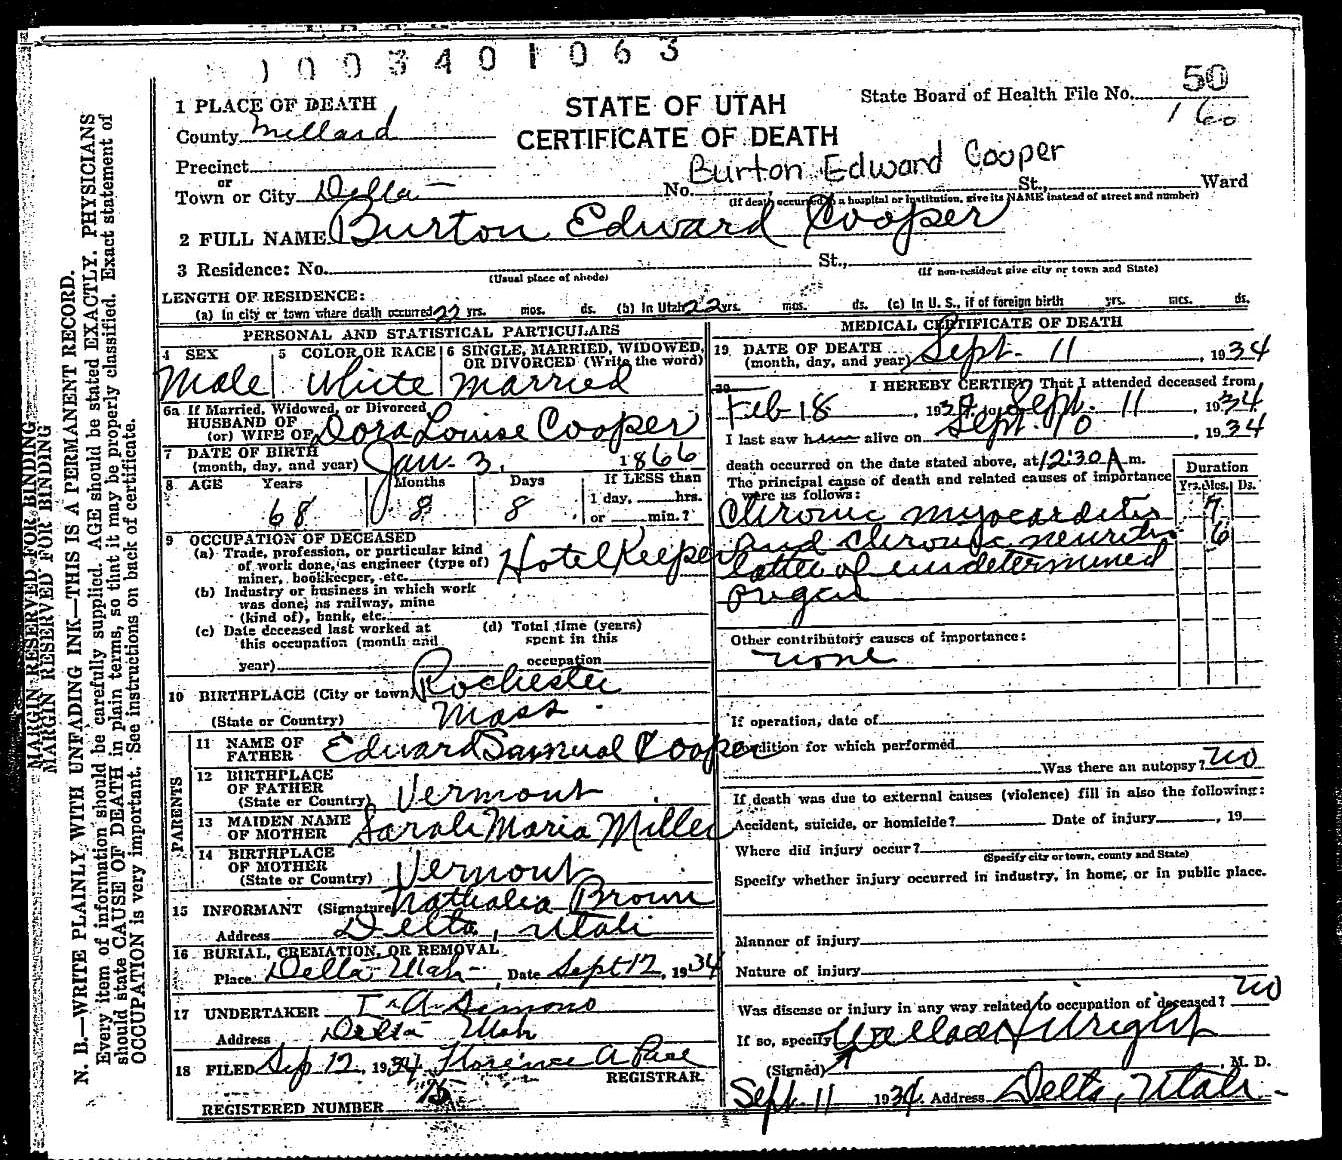 1003401063
1 PLACE OF DEATH
STATE OF UTAH
CERTIFICATE OF DEATH
State Board of Health File No. 50
160
County Millard
Precinct
or
Town or City Delta
No. Burton Edward Cooper St., Ward
(If death occurred in a hospital or institution, give its NAME instead of street and number)
2 FULL NAME Burton Edward Cooper
3 Residence: No. St.,
(Usual place of abode) (If non-resident give city or town and State)
LENGTH OF RESIDENCE:
(a) In city or town where death occurred 22 yrs. mos. ds. (b) In Utah 22 yrs. mos. ds. (c) In U. S., if of foreign birth yrs. mos. ds.
PERSONAL AND STATISTICAL PARTICULARS
4 SEX Male
5 COLOR OR RACE White
6 SINGLE, MARRIED, WIDOWED, OR DIVORCED (Write the word) Married
6a If Married, Widowed, or Divorced
HUSBAND OF
(or) WIFE OF Dora Louise Cooper
7 DATE OF BIRTH
(month, day, and year) Jan. 3, 1866
8 AGE Years 68 Months 8 Days 8
If LESS than
1 day, hrs.
or min.?
9 OCCUPATION OF DECEASED
(a) Trade, profession, or particular kind
of work done, as engineer (type of)
miner, bookkeeper, etc. Hotel Keeper
(b) Industry or business in which work
was done, as railway, mine
(kind of), bank, etc.
(c) Date deceased last worked at
this occupation (month and
year)
(d) Total time (years)
spent in this
occupation
10 BIRTHPLACE (City or town) Rochester
(State or Country) Mass.
PARENTS
11 NAME OF
FATHER Edward Samuel Cooper
12 BIRTHPLACE
OF FATHER
(State or Country) Vermont
13 MAIDEN NAME
OF MOTHER Sarah Maria Miller
14 BIRTHPLACE
OF MOTHER
(State or Country) Vermont
15 INFORMANT (Signature) Nathalia Brown
Address Delta, Utah
16 BURIAL, CREMATION, OR REMOVAL
Place Delta Utah Date Sept 12, 1934
17 UNDERTAKER
Address Delta Utah
18 FILED Sep 12, 1934 Florence A
REGISTRAR
REGISTERED NUMBER 15
MEDICAL CERTIFICATE OF DEATH
19 DATE OF DEATH
(month, day, and year) Sept. 11, 1934
20 I HEREBY CERTIFY That I attended deceased from
Feb 18, 1934 to Sept. 11, 1934
I last saw h alive on Sept. 10, 1934
death occurred on the date stated above, at 12:30 A m.
The principal cause of death and related causes of importance
were as follows:
Duration
Yrs. Mos. Ds.
Chronic myocarditis 7
and chronic neuritis 6
latter of undetermined
origin
Other contributory causes of importance:
none
If operation, date of
Condition for which performed
Was there an autopsy? no
If death was due to external causes (violence) fill in also the following:
Accident, suicide, or homicide? Date of injury , 19
Where did injury occur?
(Specify city or town, county and State)
Specify whether injury occurred in industry, in home, or in public place.
Manner of injury
Nature of injury
Was disease or injury in any way related to occupation of deceased? no
If so, specify
(Signed) Wallace H Wright, M. D.
Sept 11 1934 Address Delta, Utah
MARGIN RESERVED FOR BINDING
MARGIN RESERVED FOR BINDING
N. B.—WRITE PLAINLY, WITH UNFADING INK—THIS IS A PERMANENT RECORD.
Every item of information should be carefully supplied. AGE should be stated EXACTLY. PHYSICIANS
should state CAUSE OF DEATH in plain terms, so that it may be properly classified. Exact statement of
OCCUPATION is very important. See instructions on back of certificate.